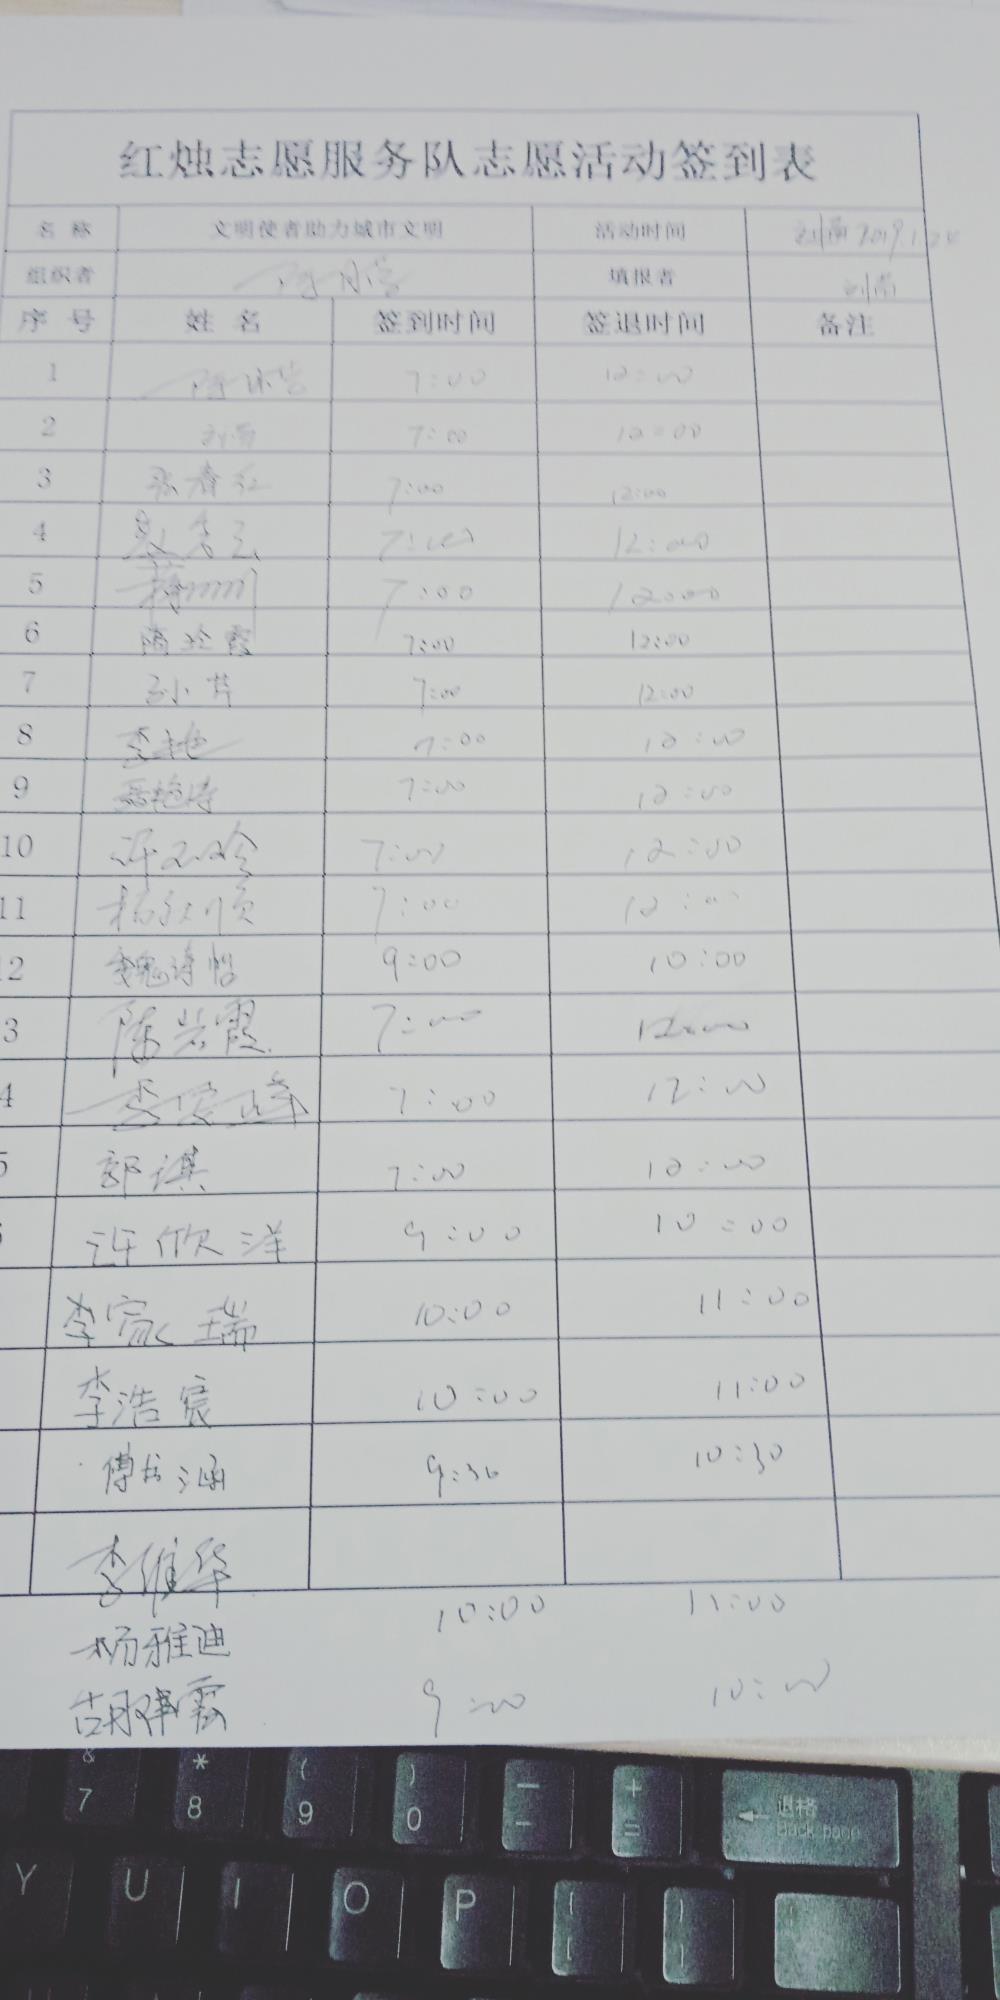 红烛志愿服务队志愿活动签到表
名称 文明使者助力城市文明 活动时间 2019.1.24
组织者 填报者 刘蕾
序号 姓名 签到时间 签退时间 备注
1 7:00 12:00
2 7:00 12:00
3 张春红 7:00 12:00
4 7:00 12:00
5 7:00 12:00
6 陶玲霞 7:00 12:00
7 孙芹 7:00 12:00
8 李艳 7:00 12:00
9 聂艳涛 7:00 12:00
10 7:00 12:00
11 杨秋顺 7:00 12:00
12 魏诗怡 9:00 10:00
3 陈岩霞 7:00 12:00
4 李俊峰 7:00 12:00
5 郭淇 7:00 12:00
许欣洋 9:00 10:00
李家瑞 10:00 11:00
李浩宸 10:00 11:00
傅书涵 9:30 10:30
李维华
杨雅迪 10:00 11:00
胡建霞 9:00 10:00
& 7 * 8 ( 9 ) 0 — - + = 退格 Back pace
Y U I O P { [ } ]